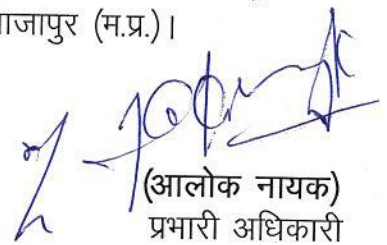 ाजापुर (म.प्र.)।
(आलोक नायक)
प्रभारी अधिकारी